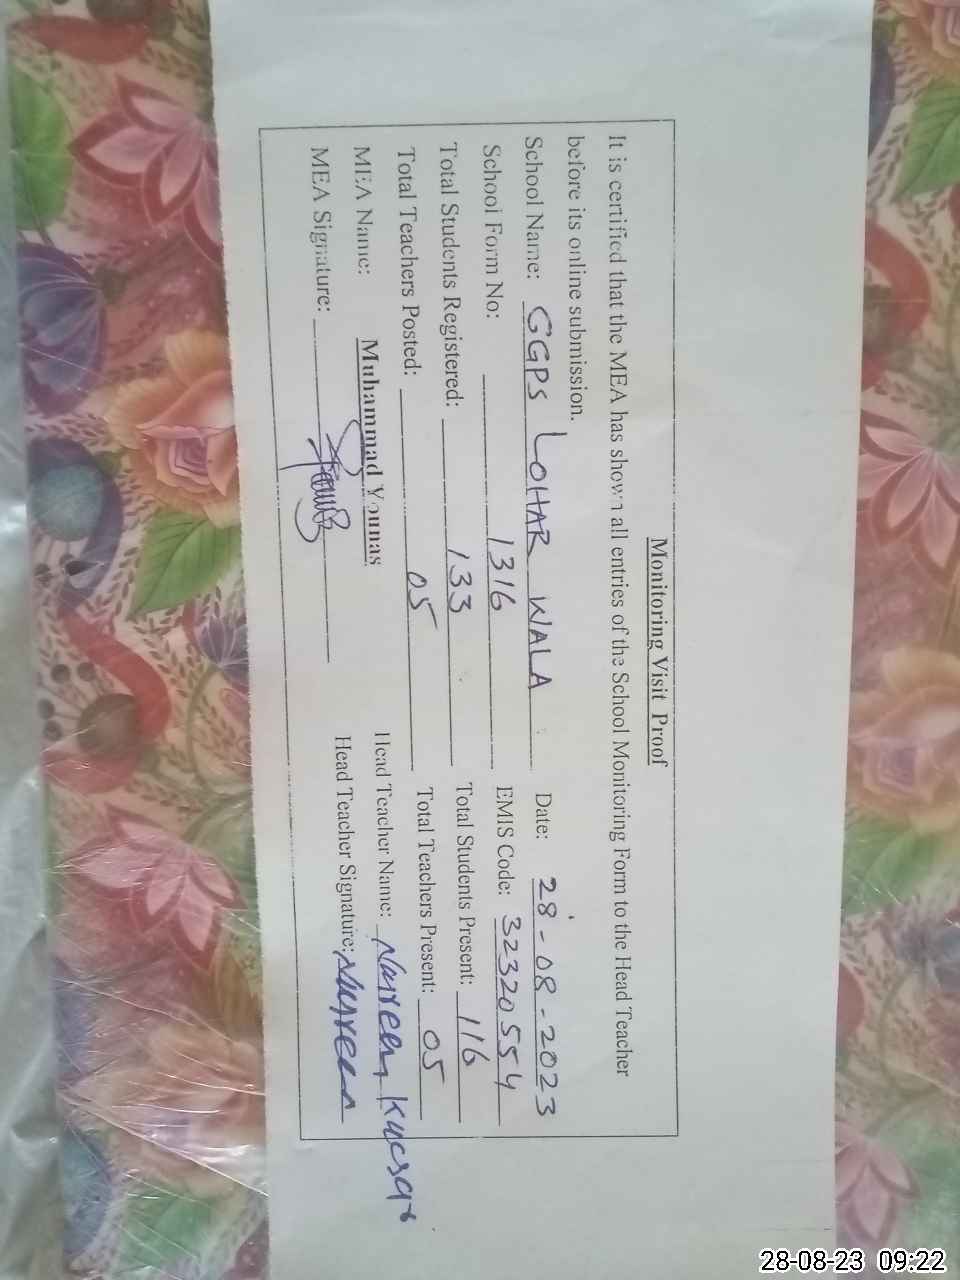 Monitoring Visit Proof
It is certified that the MEA has shown all entries of the School Monitoring Form to the Head Teacher
before its online submission.
School Name: GGPS LOHAR WALA Date: 28-08-2023
School Form No: 1316 EMIS Code: 32320554
Total Students Registered: 133 Total Students Present: 116
Total Teachers Posted: 05 Total Teachers Present: 05
MEA Name: Muhammad Younas Head Teacher Name: Nasreen Kucsar
MEA Signature: Head Teacher Signature: Nasreen
28-08-23 09:22